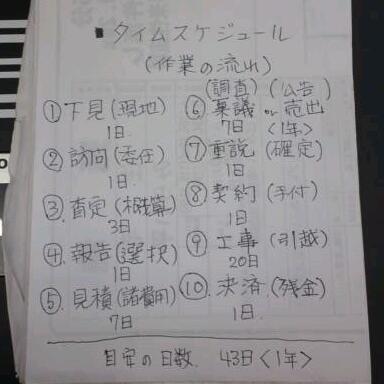 タイムスケジュール
(作業の流れ)
①下見(現地)
1日
②訪問(委任)
1日
③査定(概算)
3日
④報告(選択)
1日
⑤見積(諸費用)
7日
(調査)(公告)
⑥稟議 or 売出
7日 <1年>
⑦重説(確定)
1日
⑧契約(手付)
1日
⑨工事(引越)
20日
⑩決済(残金)
1日
目安の日数 43日<1年>